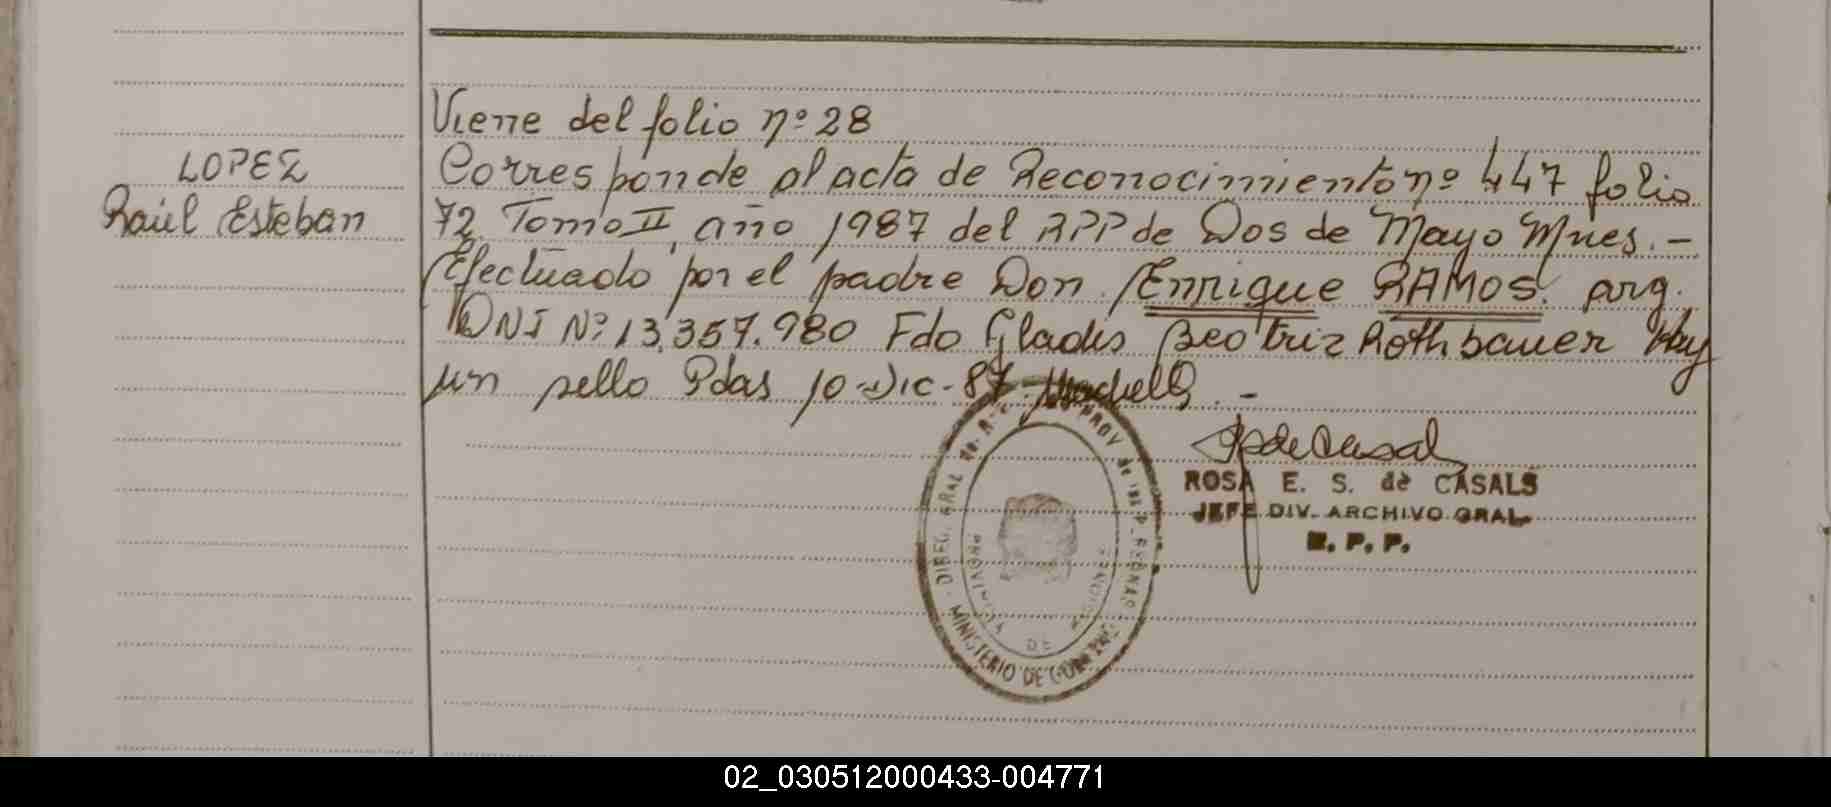 Viene del folio nº 28
LOPEZ
Raúl Esteban
Corresponde al acta de Reconocimiento nº 447 folio
72 Tomo II, año 1987 del RPP de Dos de Mayo Mnes. -
Efectuado por el padre Don Enrique RAMOS. arg.
DNI Nº 13.357.980 Fdo Gladis Beatriz Rothbauer Hay
un sello Pdas 10-Dic-87
ROSA E. S. de CASALS
JEFE DIV. ARCHIVO GRAL.
R. P. P.
DIREC. GRAL PROV de las PERSONAS
MINISTERIO DE GOBIERNO
PROVINCIA DE MISIONES
02_030512000433-004771